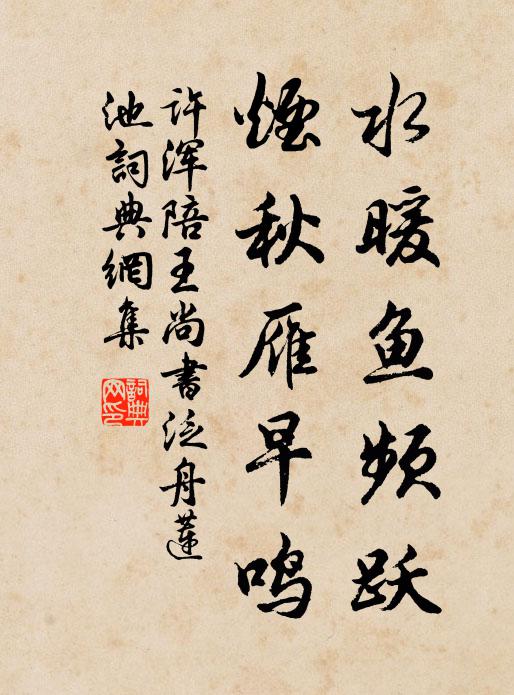 水暖鱼频跃
煙秋雁早鸣
许浑陪王尚書泛舟蓮
池詞典網集
詞典
网印